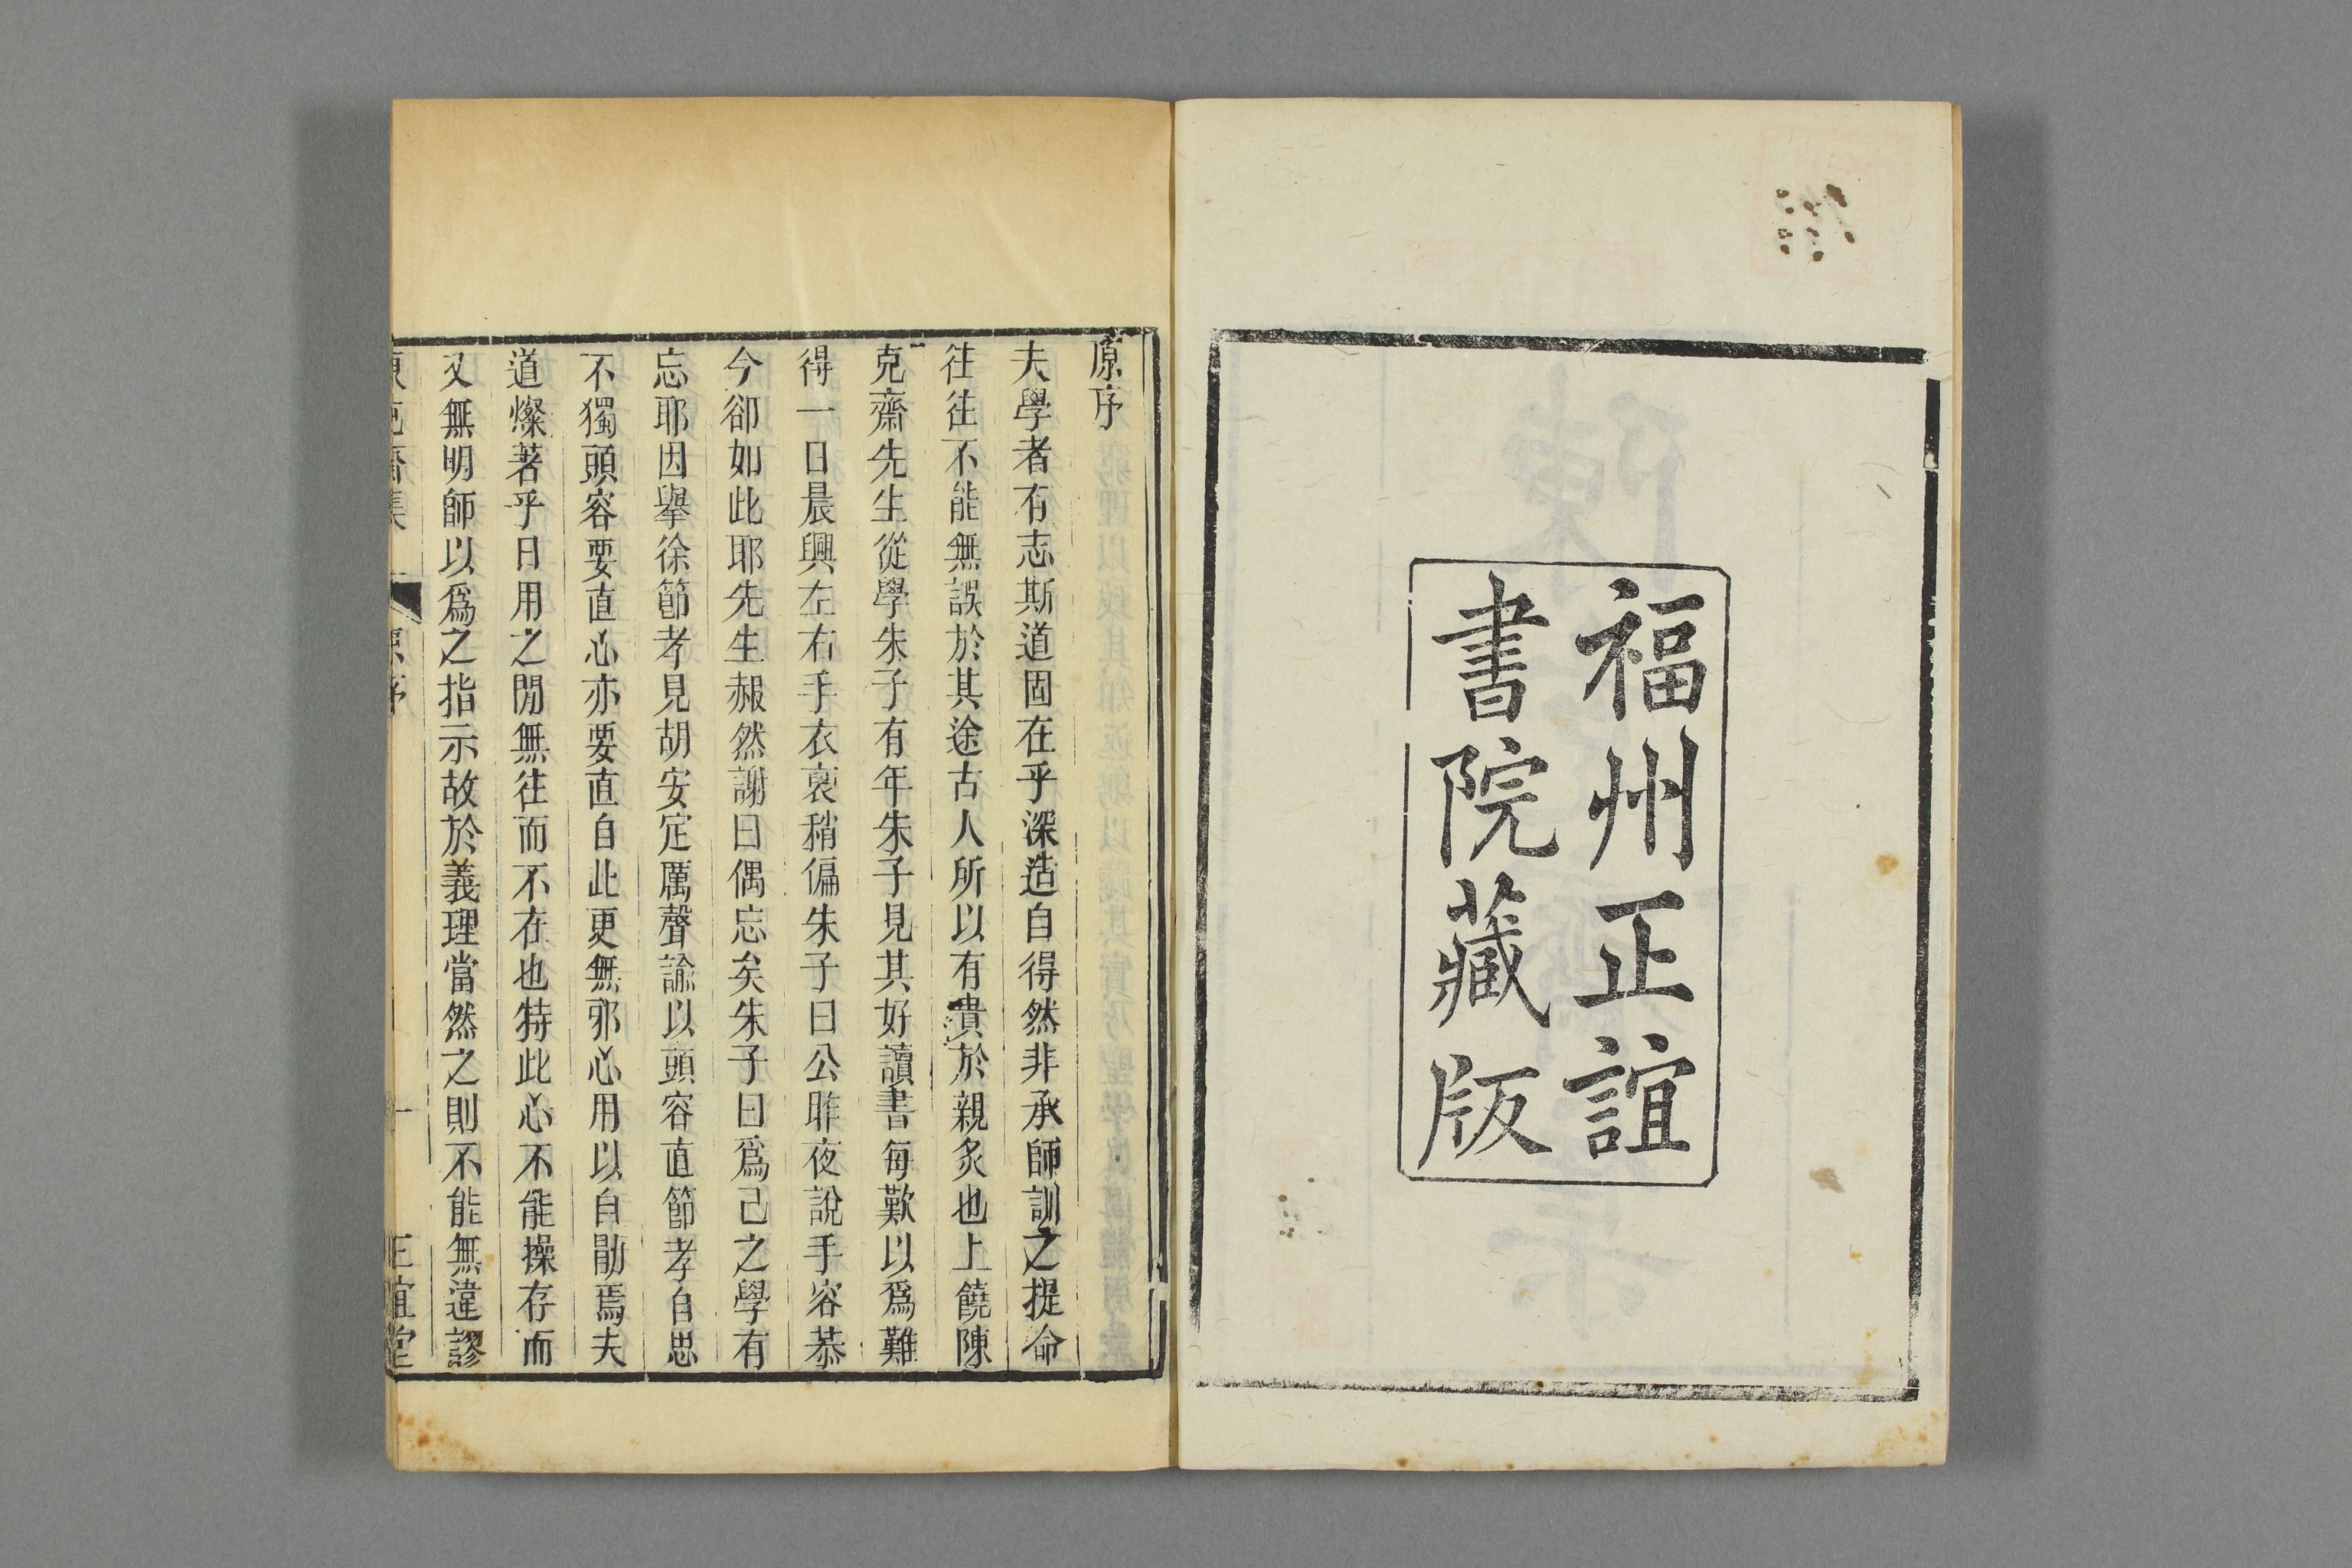 福州正誼
書院藏版
原序
夫學者有志斯道固在乎深造自得然非承師訓之提命
往往不能無誤於其途古人所以有貴於親炙也上饒陳
克齋先生從學朱子有年朱子見其好讀書每歎以爲難
得一日晨興左右手衣裒稍偏朱子曰公昨夜說手容恭
今卻如此耶先生赧然謝曰偶忘矣朱子曰爲己之學有
忘耶因擧徐節孝見胡安定厲聲諭以頭容直節孝自思
不獨頭容要直心亦要直自此更無邪心用以自勖焉夫
道燦著乎日用之閒無往而不在也特此心不能操存而
又無明師以爲之指示故於義理當然之則不能無違謬
陳克齋集 原序 一 正誼堂